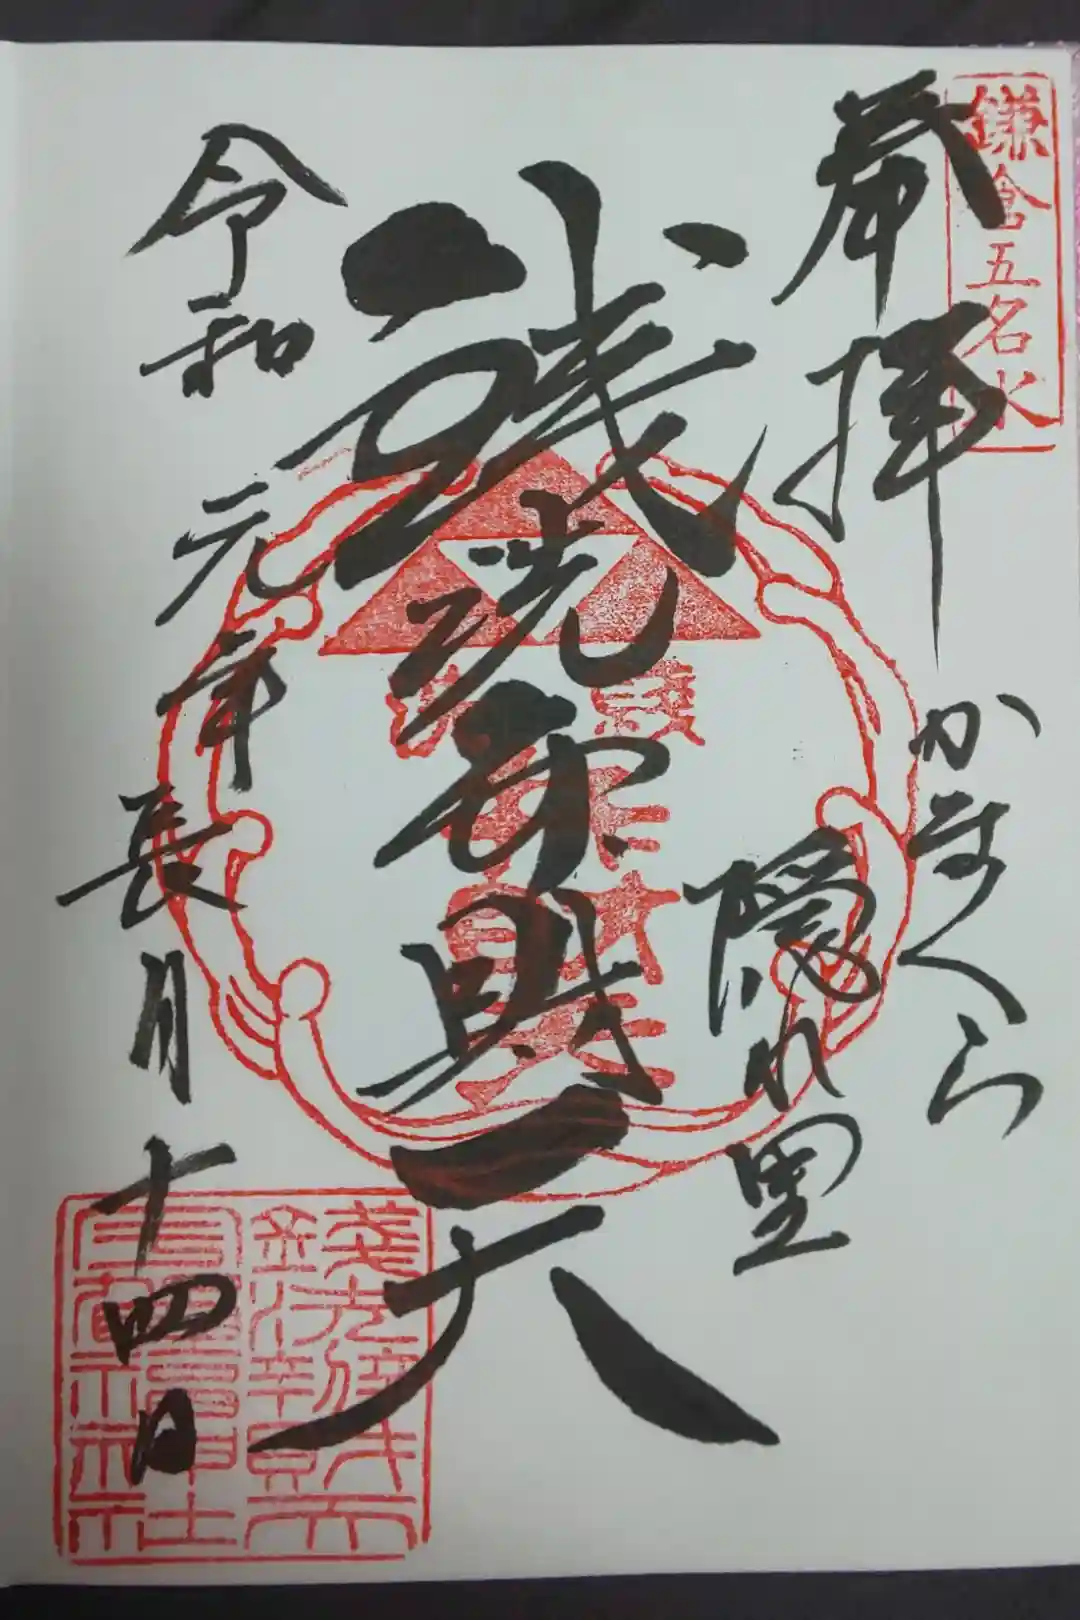 鎌倉五名水
奉拝
かまくら
隠れ里
銭洗弁財天
令和元年長月十四日
銭洗
弁財天
錢洗辨財天
宇賀福神社